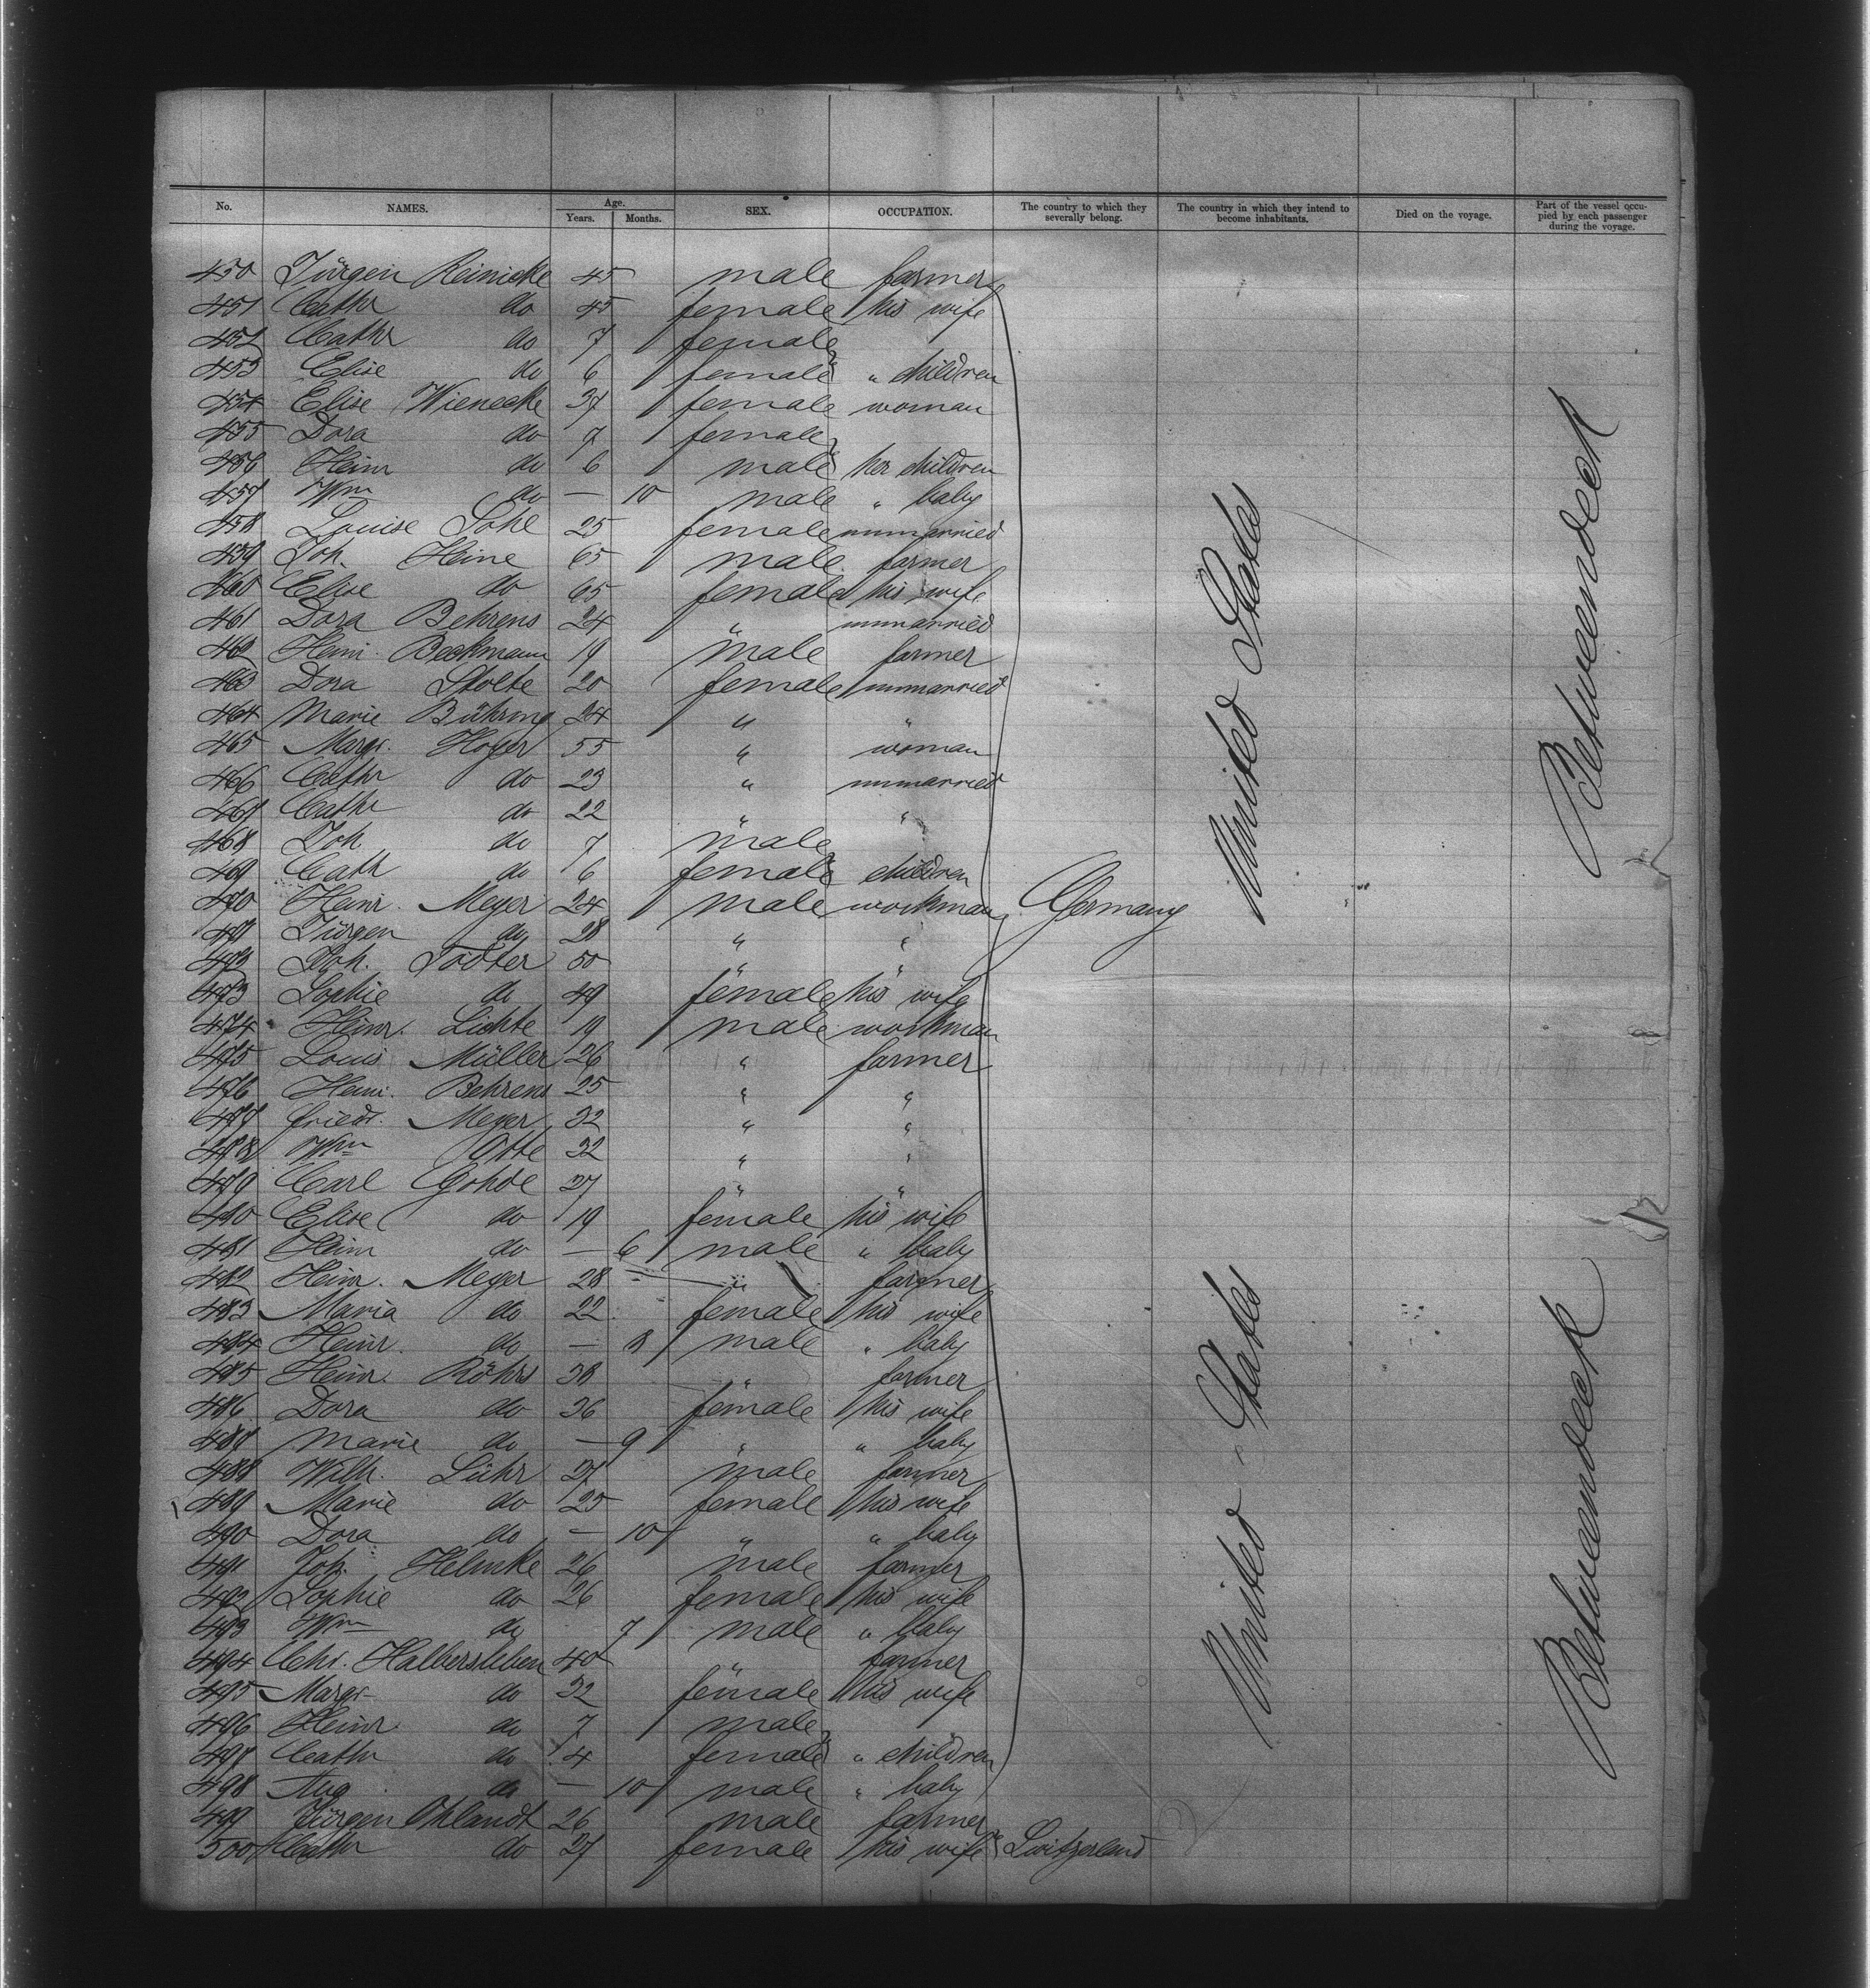 No. NAMES. Age. Years. Months. SEX. OCCUPATION. The country to which they severally belong. The country in which they intend to become inhabitants. Died on the voyage. Part of the vessel occupied by each passenger during the voyage.
450 Jürgen Reinicke 45 male farmer
451 Cathr do 45 female his wife
452 Cathr do 7 female
453 Elise do 6 female " children
454 Elise Wienecke 37 female woman
455 Dora do 7 female
456 Heinr do 6 male her children
457 Wm do — 10 male " baby
458 Louise Sohl 25 female unmarried
459 Joh. Heine 65 male farmer
460 Elise do 65 female his wife
461 Dora Behrens 24 " unmarried
462 Heinr. Beckmann 19 male farmer
463 Dora Stolte 20 female unmarried
464 Marie Bühring 24 " "
465 Margr. Hoyer 55 " woman
466 Cathr do 23 " unmarried
467 Cathr do 22 " "
468 Joh. do 7 male
469 Cath do 6 female children
470 Heinr. Meyer 24 male workman
471 Jürgen do 28 " "
472 Joh. Tödter 50 " "
473 Sophie do 49 female his wife
474 Heinr. Lichte 19 male workman
475 Louis Müller 26 " farmer
476 Heinr. Behrens 25 " "
477 Friedr. Meyer 32 " "
478 Wm Otte 32 " "
479 Carl Gohde 27 " "
480 Elise do 19 female his wife
481 Heinr do — 6 male " baby
482 Heinr. Meyer 28 — " farmer
483 Maria do 22 female his wife
484 Heinr. do — 8 male " baby
485 Heinr. Röhrs 38 " farmer
486 Dora do 36 female his wife
487 Marie do — 9 " " baby
488 Wilh. Lühr 27 male farmer
489 Marie do 25 female his wife
490 Dora do — 10 " " baby
491 Joh. Helmke 26 male farmer
492 Sophie do 26 female his wife
493 Wm do 7 male " baby
494 Chr. Halbersleben 40 " farmer
495 Margr. do 32 female his wife
496 Heinr. do 7 male
497 Cathr do 4 female " children
498 Aug do — 10 male " baby
499 Jürgen Ohlandt 26 male farmer
500 Cathr do 27 female his wife Switzerland
Germany
United States
United States
Betweendeck
Betweendeck